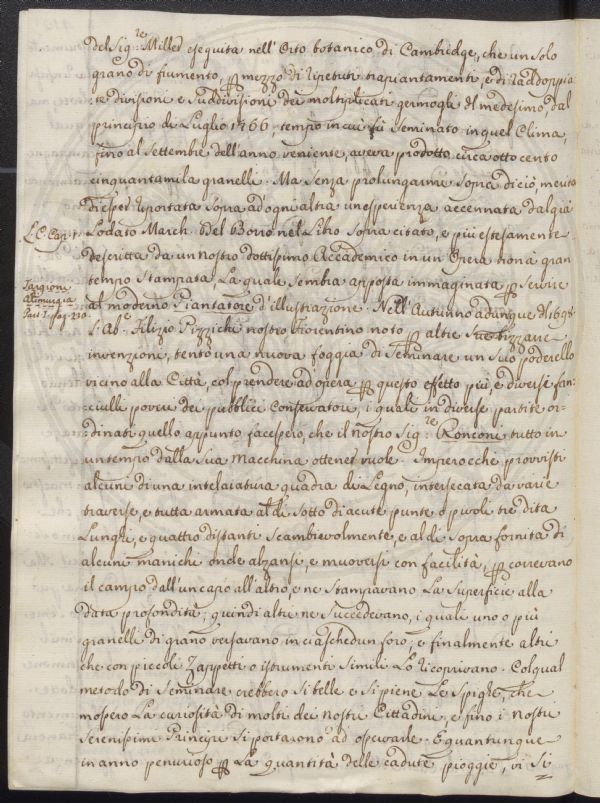 del Sig.re Milled eseguita nell'Orto botanico di Cambridge, che un solo
grano di frumento, per mezzo di ripetuti trapiantamenti, e di raddoppia:
:te divisioni e suddivisioni dei moltiplicati germogli del medesimo, dal
principio di Luglio 1766, tempo in cui fù seminato in quel Clima,
fino al Settembre dell'anno veniente, aveva prodotto circa otto cento
cinquantamila granelli. Ma senza prolungarmi sopra di ciò, merita
di esser riportata sopra ad ogni altra un esperienza accennata dal già
L. C. Cap. 7.
Lodato March. Del Borro nel Libro Sopra citato, e più estesamente
descritta da un nostro dottissimo Accademico in un Opera non a gran
Targioni
Alimurgia
Part. I. pag. 230.
tempo Stampata, La quale Sembra apposta immaginata per servire
al moderno Piantatore d'illustrazione. Nell'Autunno adunque del 1698.
l'Ab.e Filizio Pizzichi nostro Fiorentino noto per altre sue bizzarre
invenzioni, tentò una nuova foggia di Seminare un Suo poderello
vicino alla Città, col prendere ad opera per questo effetto più, e diverse fan:
ciulle povere dei pubblici Conservatori, i quali in diverse partite or:
dinati quello appunto facessero, che il nostro Sig.re Ronconi tutto in
un tempo dalla Sua Macchina ottener vuole. Imperocchè provvisti
alcuni di una intelaiatura quadra di Legno, intersecata da varie
traverse, e tutta armata al di Sotto di acute punte o pivoli tre dita
Lunghi, e quattro distanti Scambievolmente, e al di Sopra fornita di
alcuni manichi onde alzarsi, e muoversi con facilità, per correvano
il campo dall'un capo all'altro, e ne Stampavano La Superficie alla
data profondità; quindi altri ne Succedevano, i quali uno o più
granelli di grano versavano in ciaschedun foro, e finalmente altri
che con piccoli Zappetti o istrumenti Simili Lo ricoprivano. Col qual
metodo di Seminare crebbero Si belle e Si piene Le Spighe, che
mossero La curiosità di molti dei nostri Cittadini, e fino i nostri
Serenissimi Principi Si portarono ad osservarle. E quantunque
in anno penurioso per La quantità delle cadute pioggie, vi Si